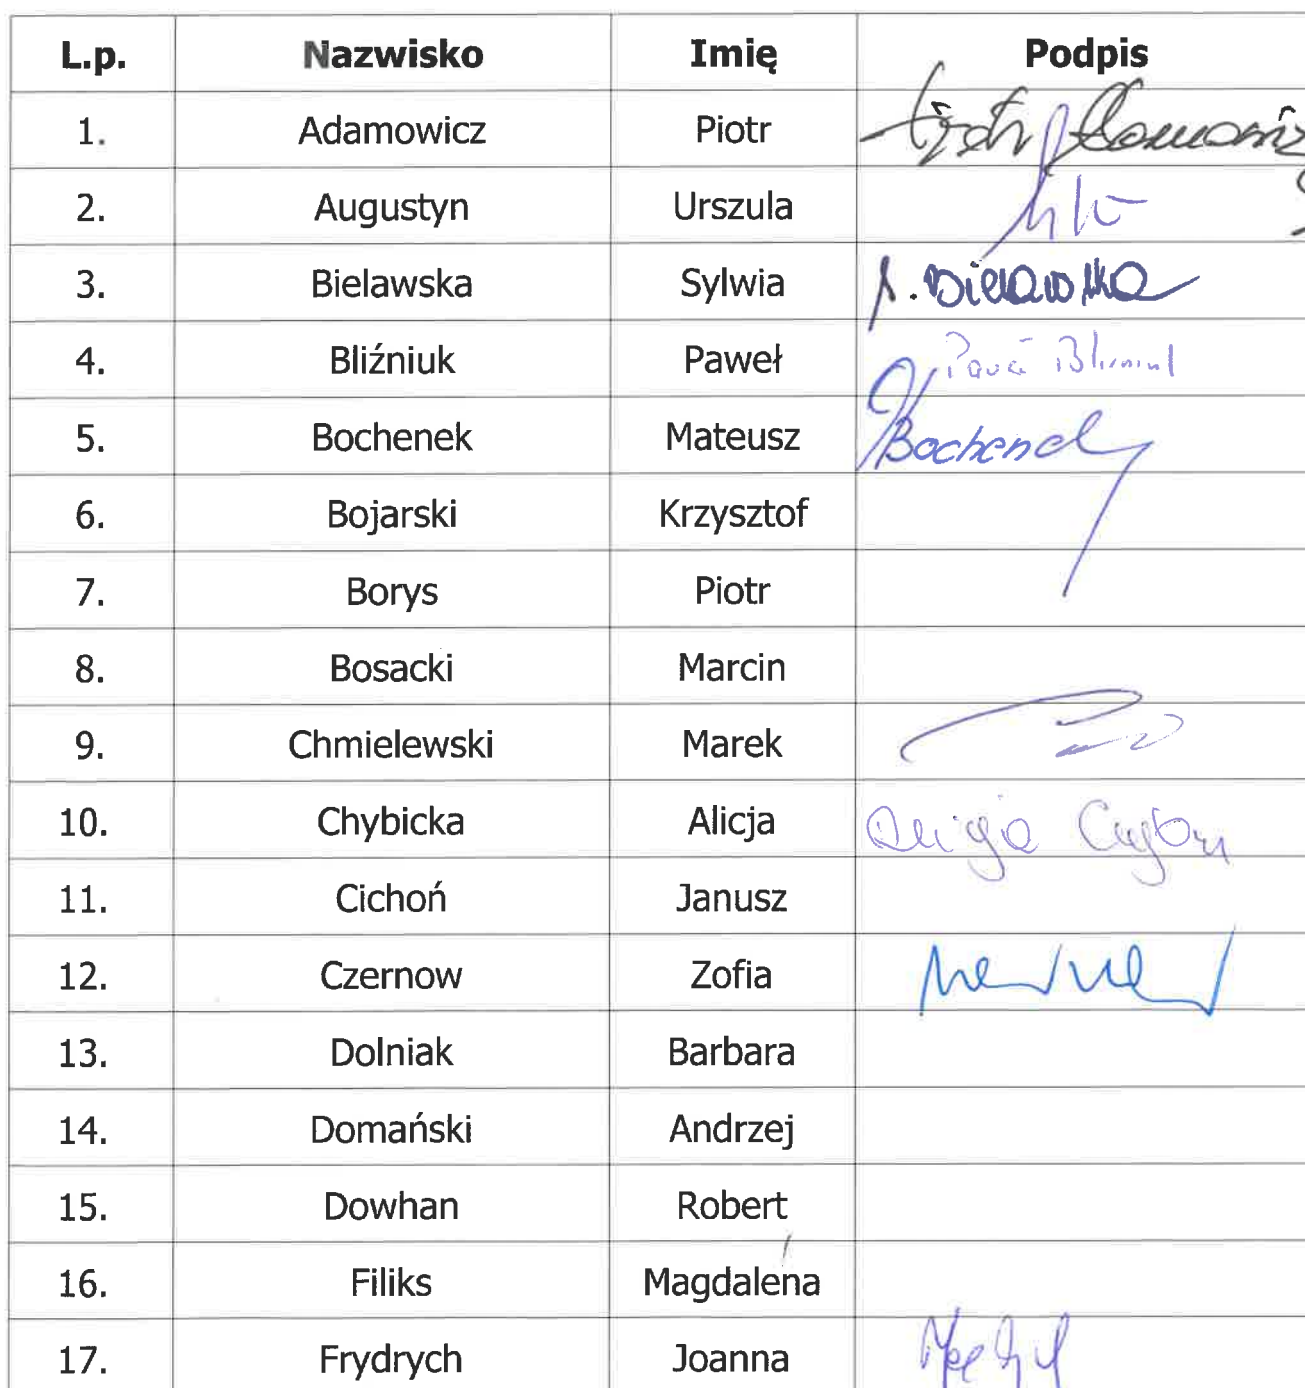 L.p. Nazwisko Imię Podpis
1. Adamowicz Piotr Piotr Adamowicz
2. Augustyn Urszula
3. Bielawska Sylwia S. Bielawska
4. Bliźniuk Paweł Paweł Bliźniuk
5. Bochenek Mateusz MBochenek
6. Bojarski Krzysztof
7. Borys Piotr
8. Bosacki Marcin
9. Chmielewski Marek
10. Chybicka Alicja Alicja
11. Cichoń Janusz
12. Czernow Zofia
13. Dolniak Barbara
14. Domański Andrzej
15. Dowhan Robert
16. Filiks Magdalena
17. Frydrych Joanna